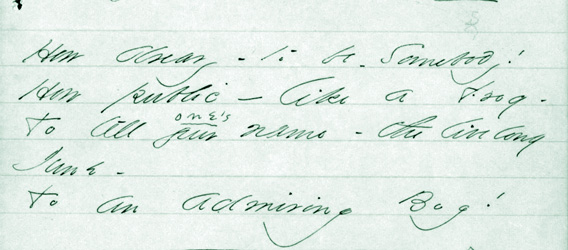 How dreary - to be - Somebody!
How public - like a Frog -
one's
To tell your name - the livelong
June -
To an admiring Bog!